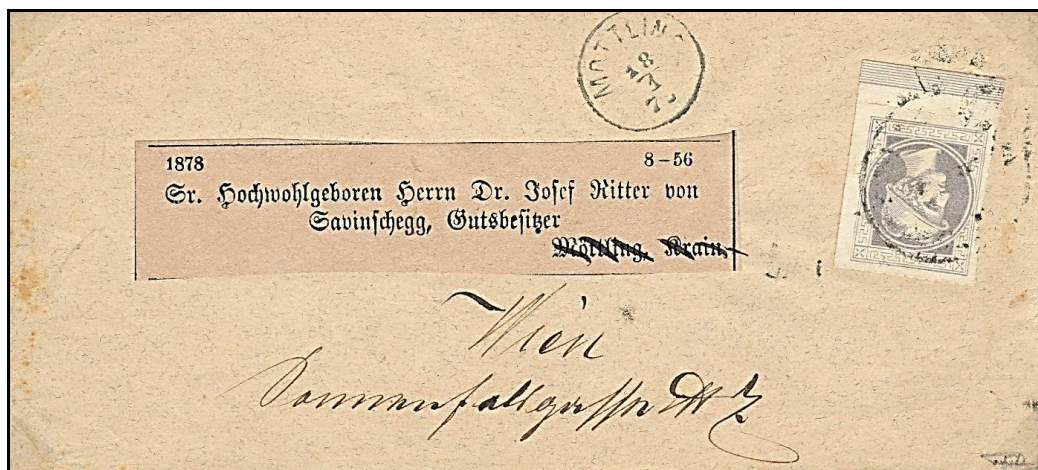 MÖTTLING
18
1
1878 8–56
Sr. Hochwohlgeboren Herrn Dr. Josef Ritter von
Savinschegg, Gutsbesitzer
Möttling, Krain
Wien
Sonnenfelsgasse № 7